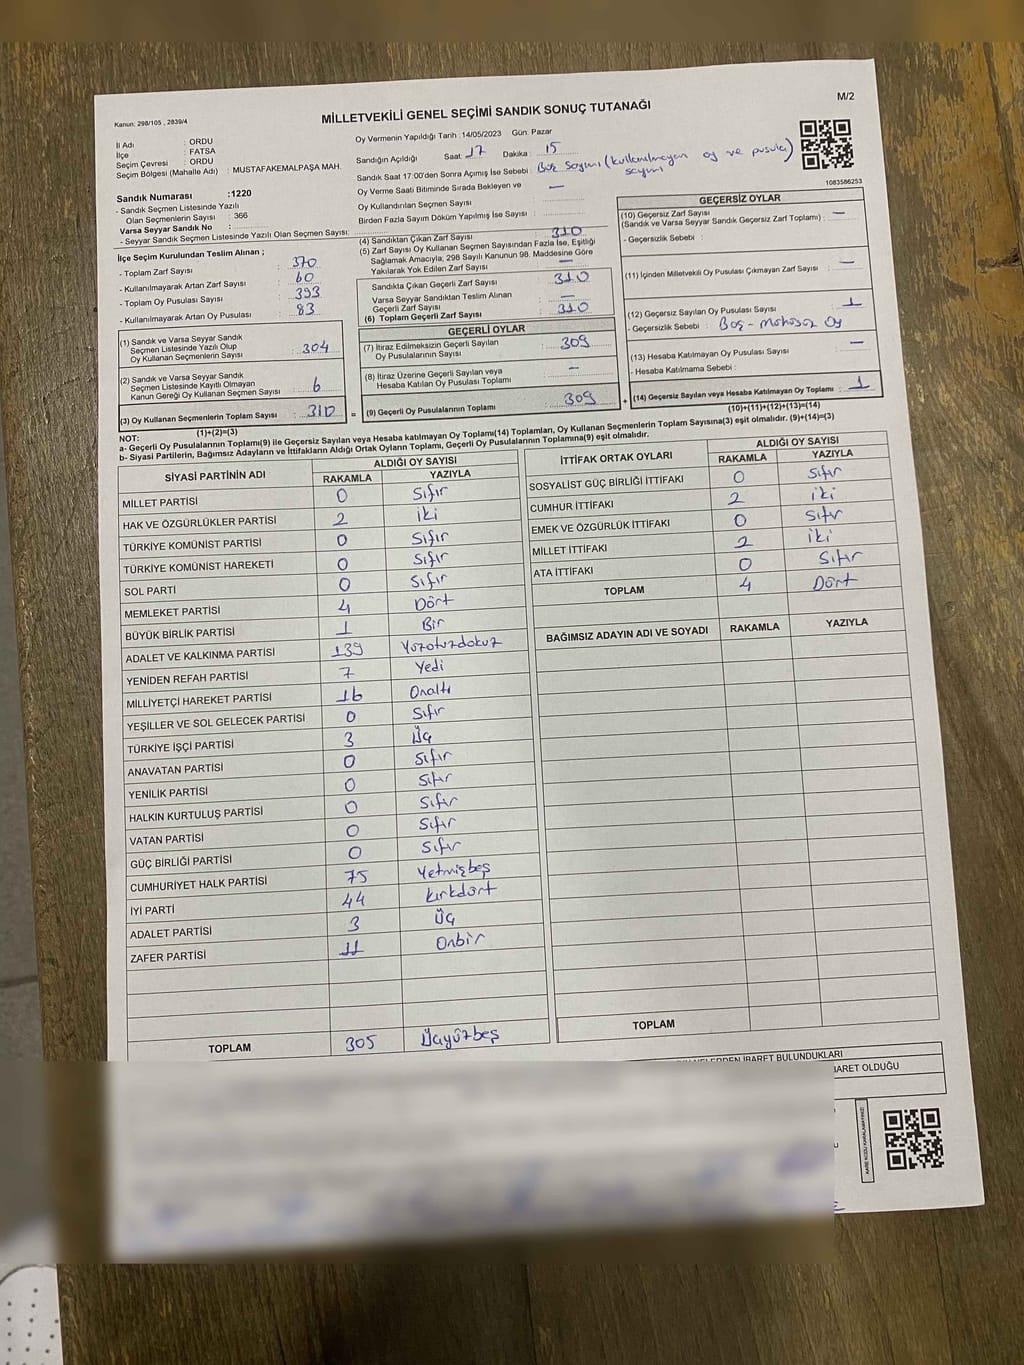 M/2
Kanun: 298/105 , 2839/4
MİLLETVEKİLİ GENEL SEÇİMİ SANDIK SONUÇ TUTANAĞI
İl Adı : ORDU
İlçe : FATSA
Seçim Çevresi : ORDU
Seçim Bölgesi (Mahalle Adı) : MUSTAFAKEMALPAŞA MAH.
Oy Vermenin Yapıldığı Tarih :14/05/2023 Gün: Pazar
Sandığın Açıldığı Saat: 17 Dakika : 15
Sandık Saat 17:00'den Sonra Açımış İse Sebebi : Boz Sayımı (kullanılmayan oy ve pusula) sayımı
Oy Verme Saati Bitiminde Sırada Bekleyen ve
Oy Kullandırılan Seçmen Sayısı : —
Birden Fazla Sayım Döküm Yapılmış İse Sayısı :
1083586253
Sandık Numarası :1220
- Sandık Seçmen Listesinde Yazılı
Olan Seçmenlerin Sayısı : 366
Varsa Seyyar Sandık No :
- Seyyar Sandık Seçmen Listesinde Yazılı Olan Seçmen Sayısı:
İlçe Seçim Kurulundan Teslim Alınan ;
- Toplam Zarf Sayısı : 370
- Kullanılmayarak Artan Zarf Sayısı : 60
- Toplam Oy Pusulası Sayısı : 393
- Kullanılmayarak Artan Oy Pusulası : 83
(1) Sandık ve Varsa Seyyar Sandık
Seçmen Listesinde Yazılı Olup
Oy Kullanan Seçmenlerin Sayısı : 304
(2) Sandık ve Varsa Seyyar Sandık
Seçmen Listesinde Kayıtlı Olmayan
Kanun Gereği Oy Kullanan Seçmen Sayısı : 6
(3) Oy Kullanan Seçmenlerin Toplam Sayısı : 310
(1)+(2)=(3)
(4) Sandıktan Çıkan Zarf Sayısı : 310
(5) Zarf Sayısı Oy Kullanan Seçmen Sayısından Fazla İse, Eşitliği
Sağlamak Amacıyla, 298 Sayılı Kanunun 98. Maddesine Göre
Yakılarak Yok Edilen Zarf Sayısı : —
Sandıkta Çıkan Geçerli Zarf Sayısı : 310
Varsa Seyyar Sandıktan Teslim Alınan
Geçerli Zarf Sayısı : —
(6) Toplam Geçerli Zarf Sayısı : 310
GEÇERLİ OYLAR
(7) İtiraz Edilmeksizin Geçerli Sayılan
Oy Pusulalarının Sayısı : 309
(8) İtiraz Üzerine Geçerli Sayılan veya
Hesaba Katılan Oy Pusulası Toplamı : —
= (9) Geçerli Oy Pusulalarının Toplamı : 309
GEÇERSİZ OYLAR
(10) Geçersiz Zarf Sayısı
(Sandık ve Varsa Seyyar Sandık Geçersiz Zarf Toplamı) : —
- Geçersizlik Sebebi :
(11) İçinden Milletvekili Oy Pusulası Çıkmayan Zarf Sayısı : —
(12) Geçersiz Sayılan Oy Pusulası Sayısı : 1
- Geçersizlik Sebebi : Boş - Mühürsüz Oy
(13) Hesaba Katılmayan Oy Pusulası Sayısı : —
- Hesaba Katılmama Sebebi :
+ (14) Geçersiz Sayılan veya Hesaba Katılmayan Oy Toplamı : 1
(10)+(11)+(12)+(13)=(14)
NOT:
a- Geçerli Oy Pusulalarının Toplamı(9) ile Geçersiz Sayılan veya Hesaba katılmayan Oy Toplamı(14) Toplamları, Oy Kullanan Seçmenlerin Toplam Sayısına(3) eşit olmalıdır. (9)+(14)=(3)
b- Siyasi Partilerin, Bağımsız Adayların ve İttifakların Aldığı Ortak Oyların Toplamı, Geçerli Oy Pusulalarının Toplamına(9) eşit olmalıdır.
SİYASİ PARTİNİN ADI ALDIĞI OY SAYISI
RAKAMLA YAZIYLA
MİLLET PARTİSİ 0 Sıfır
HAK VE ÖZGÜRLÜKLER PARTİSİ 2 iki
TÜRKİYE KOMÜNİST PARTİSİ 0 Sıfır
TÜRKİYE KOMÜNİST HAREKETİ 0 Sıfır
SOL PARTİ 0 Sıfır
MEMLEKET PARTİSİ 4 Dört
BÜYÜK BİRLİK PARTİSİ 1 Bir
ADALET VE KALKINMA PARTİSİ 139 Yüzotuzdokuz
YENİDEN REFAH PARTİSİ 7 Yedi
MİLLİYETÇİ HAREKET PARTİSİ 16 Onaltı
YEŞİLLER VE SOL GELECEK PARTİSİ 0 Sıfır
TÜRKİYE İŞÇİ PARTİSİ 3 Üç
ANAVATAN PARTİSİ 0 Sıfır
YENİLİK PARTİSİ 0 Sıfır
HALKIN KURTULUŞ PARTİSİ 0 Sıfır
VATAN PARTİSİ 0 Sıfır
GÜÇ BİRLİĞİ PARTİSİ 0 Sıfır
CUMHURİYET HALK PARTİSİ 75 Yetmişbeş
İYİ PARTİ 44 Kırkdört
ADALET PARTİSİ 3 Üç
ZAFER PARTİSİ 11 Onbir
TOPLAM 305 Üçyüzbeş
İTTİFAK ORTAK OYLARI ALDIĞI OY SAYISI
RAKAMLA YAZIYLA
SOSYALİST GÜÇ BİRLİĞİ İTTİFAKI 0 Sıfır
CUMHUR İTTİFAKI 2 iki
EMEK VE ÖZGÜRLÜK İTTİFAKI 0 Sıfır
MİLLET İTTİFAKI 2 iki
ATA İTTİFAKI 0 Sıfır
TOPLAM 4 Dört
BAĞIMSIZ ADAYIN ADI VE SOYADI RAKAMLA YAZIYLA
TOPLAM
İBARET BULUNDUKLARI
OLDUĞU